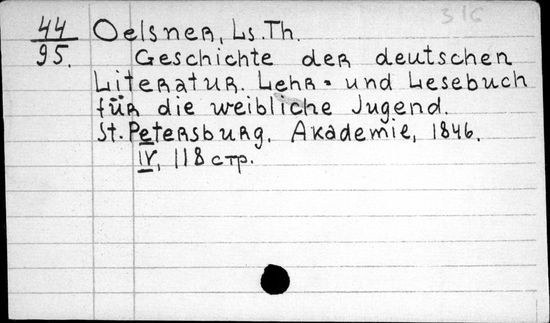 316
44
95.
Oelsner, Ls. Th.
Geschichte der deutschen
Literatur. Lehr- und Lesebuch
für die weibliche Jugend.
St. Petersburg, Akademie, 1846.
IV, 118 стр.